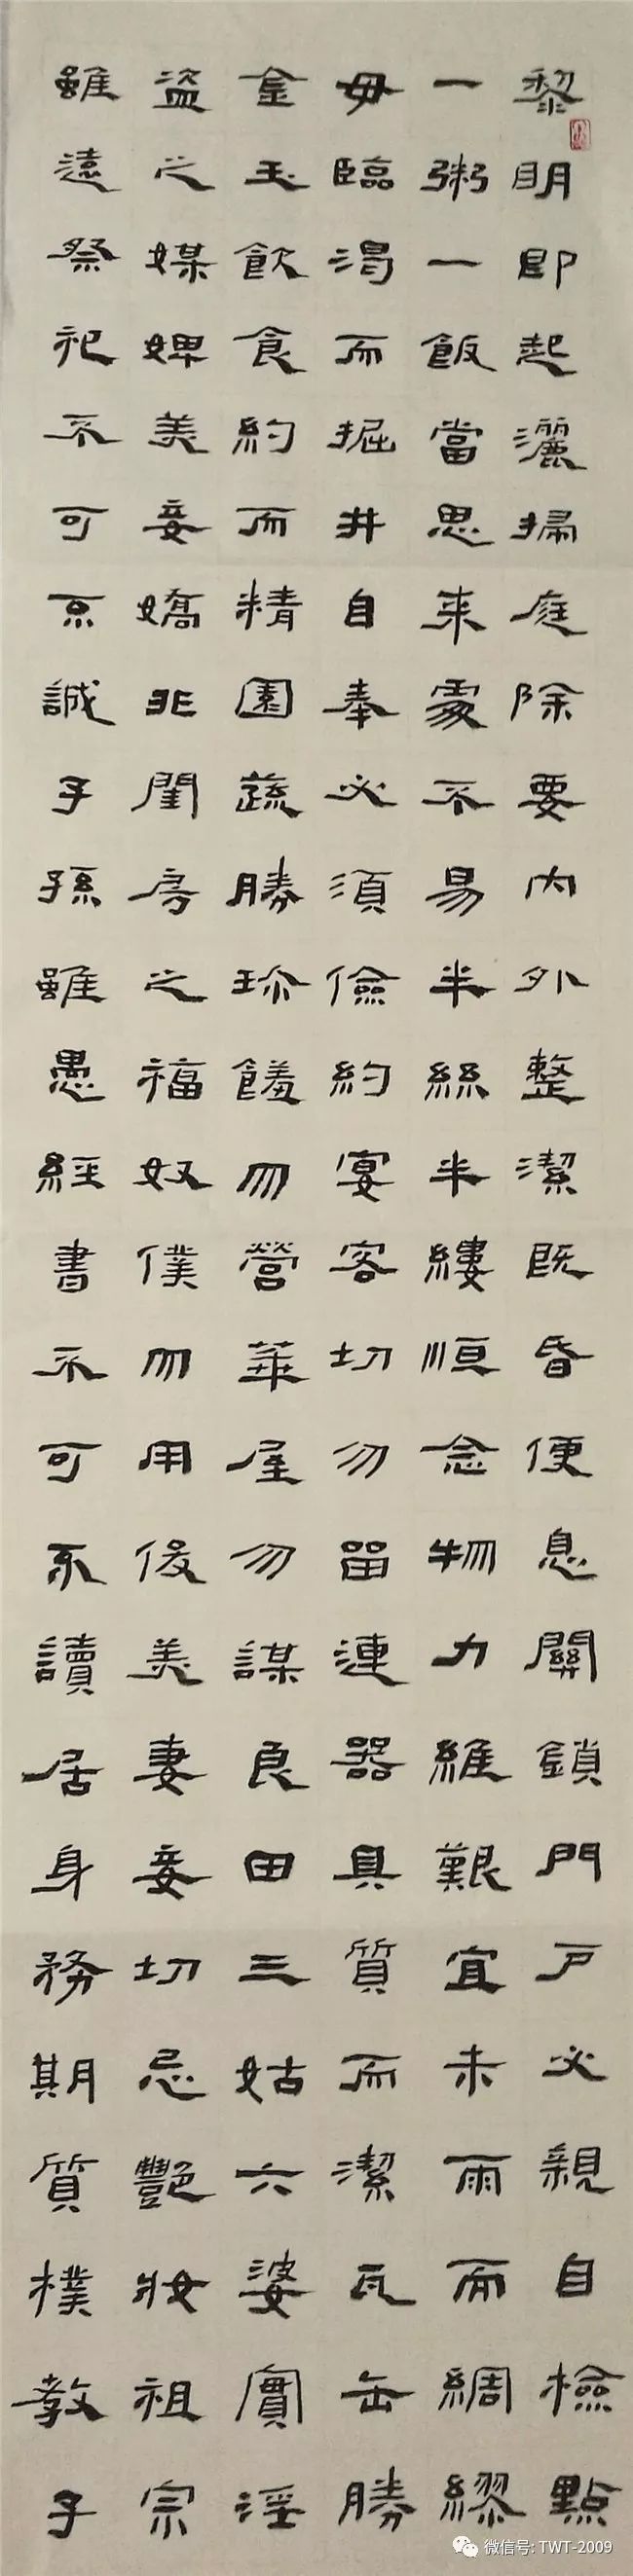 黎明即起灑掃庭除要內外整潔既昏便息關鎖門戶必親自檢點
一粥一飯當思来處不易半絲半縷恆念物力維艱宜未雨而綢繆
毋臨渴而掘井自奉必須儉約宴客切勿留漣器具質而潔瓦缶勝
金玉飲食約而精園蔬勝珍饈勿營華屋勿謀良田三姑六婆實淫
盜之媒婢美妾嬌非閨房之福奴僕勿用俊美妻妾切忌艷妝祖宗
雖遠祭祀不可不誠子孫雖愚經書不可不讀居身務期質樸教子
微信号: TWT-2009